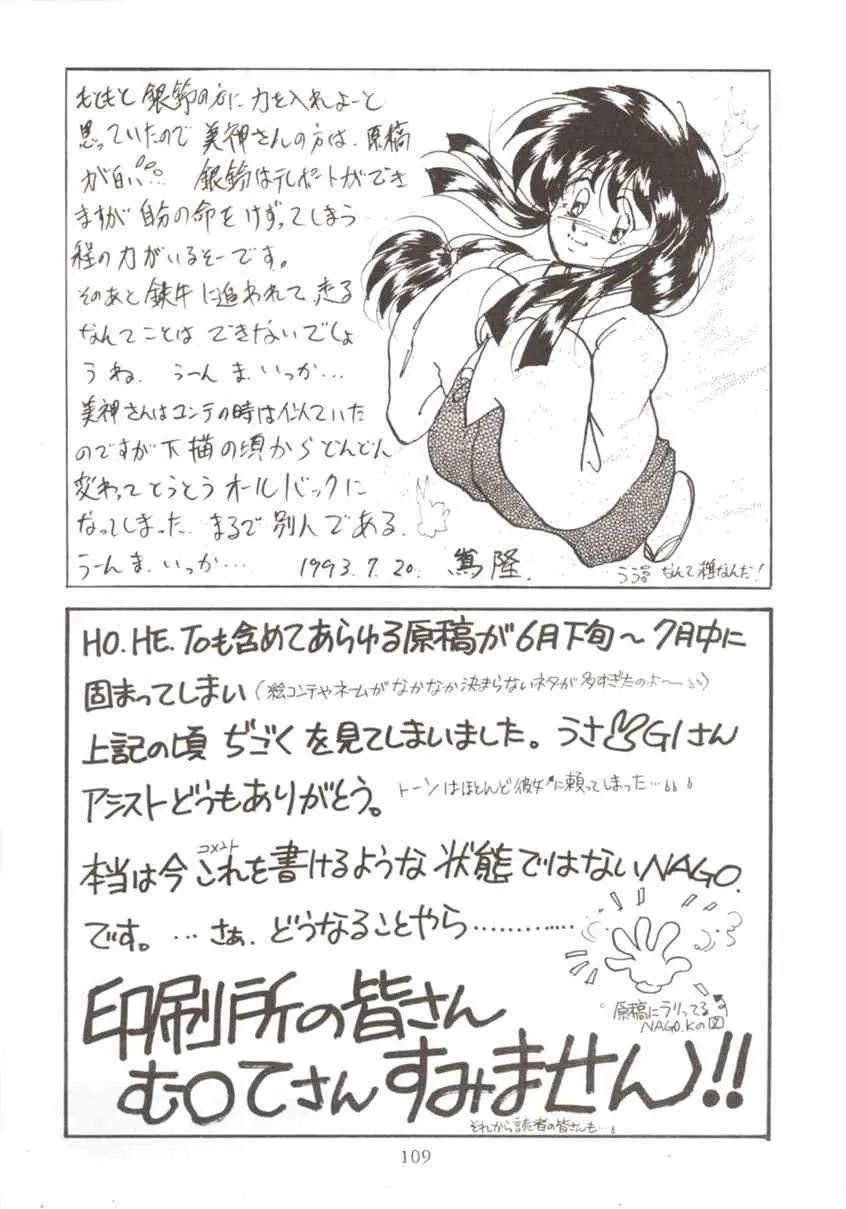 もともと 銀鈴の方に 力を入れよーと
思っていたので 美神さんの方は、原稿
が白い… 銀鈴はテレポートができ
ますが 自分の命をけずってしまう
程の力がいるそーです。
そのあと 鉄牛に追われて、走る
なんてことは できないでしょ
うね、 うーん ま、いっか…
美神さんはコンテの時は似ていた
のですが 下描の頃から どんどん
変わって とうとう オールバックに
なってしまった、まるで 別人である、
うーん ま、いっか… 1993.7.20.
うう なんて 雑なんだ!
HO.HE.Toも含めてあらゆる原稿が6月下旬〜7月中に
固まってしまい(絵コンテやネームがなかなか決まらないネタが多すぎたのよ〜)
上記の頃 ぢごくを見てしまいました。うさGIさん
アシストどうもありがとう。トーンはほとんど彼女に頼ってしまった…
コメント
本当は今これを書けるような状態ではないNAGO.
です。…さぁ、どうなることやら…………
原稿にラリってる
NAGO.Kの図
印刷所の皆さん
む○てさんすみません!!
それから読者の皆さんも…
109